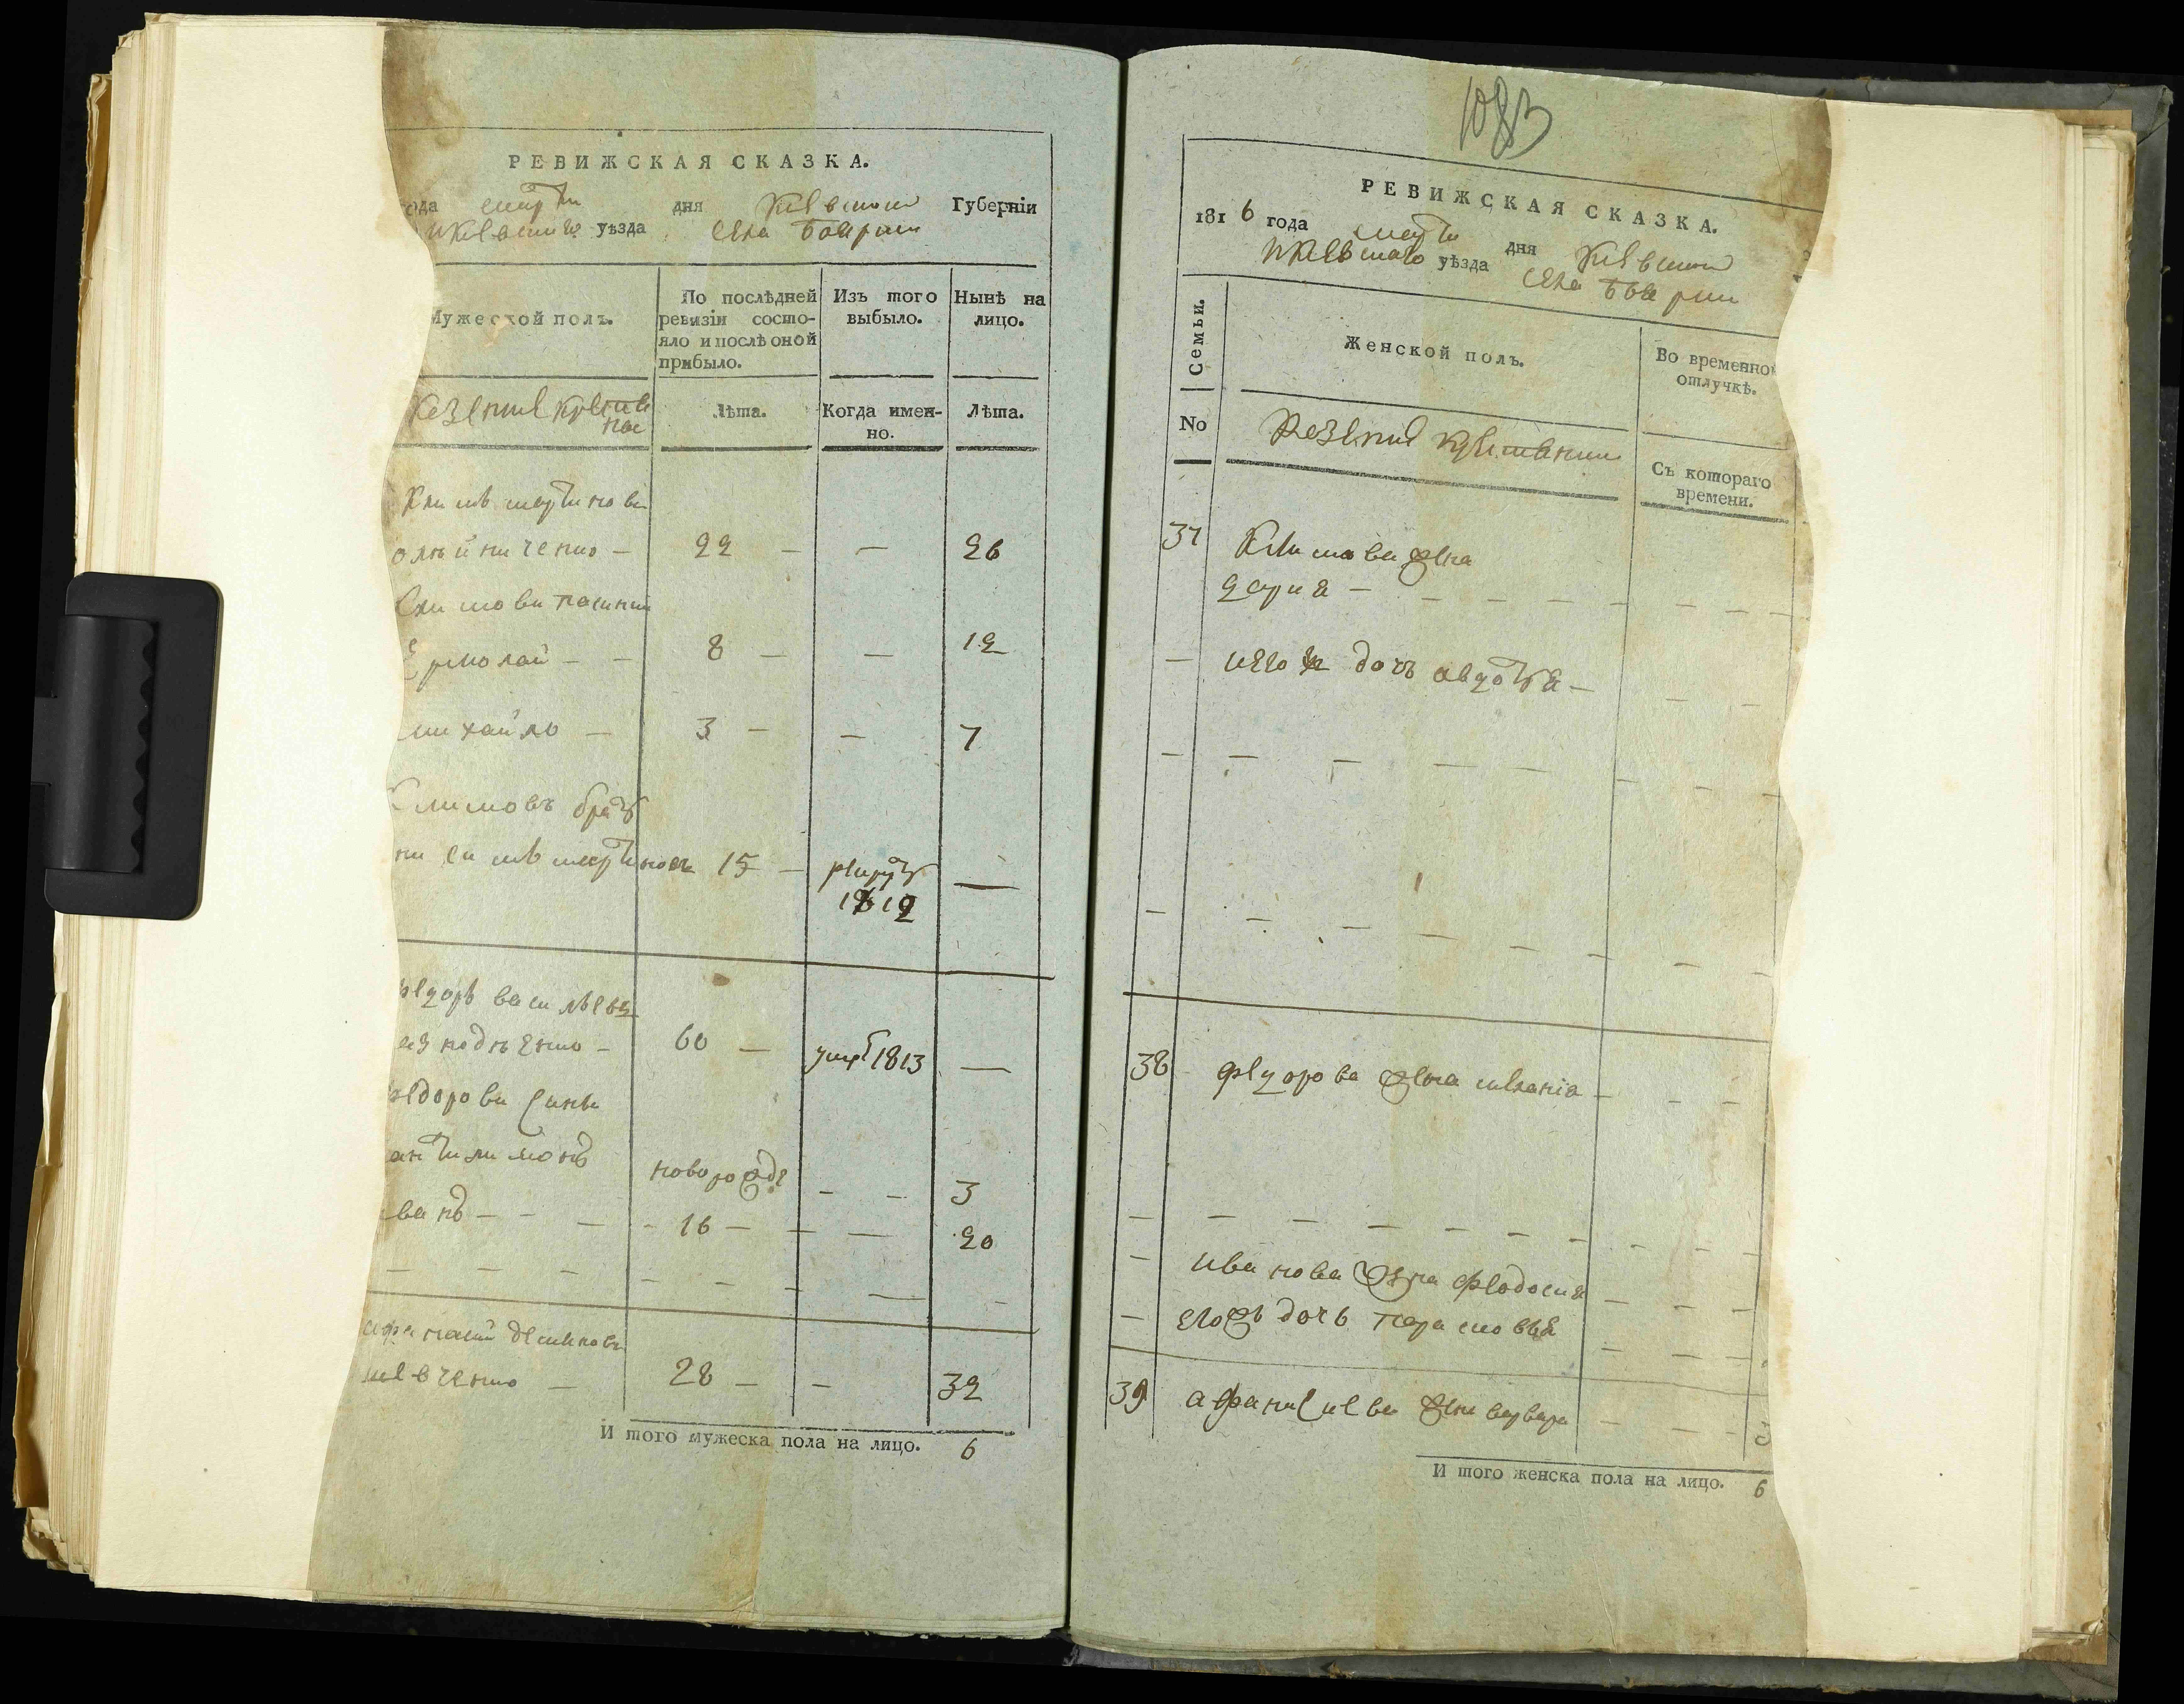 РЕВИЖСКАЯ СКАЗКА.
года марта дня Киевской Губерніи
Киевскаго уѣзда села Боярки
Мужеской полъ.
По послѣдней ревизіи состояло и послѣ оной прибыло.
Изъ того выбыло.
Нынѣ на лицо.
Казенніе
Лѣта.
Когда именно.
Лѣта.
Климъ мартиновъ
олѣйниченко – 22 – – 26
Климови
Ермолай – – 8 – – 12
михайло – 3 – – 7
Климовъ братъ
мартиновъ 15 – рекрут —
1812
Федоръ василѣевъ
60 – умре 1813 —
федорови сини
антилимонъ новорожде – – 3
иванъ – – – 16 – – — 20
афанасий демяновъ
шевченко – 28 – – 32
И того мужеска пола на лицо. 6
1083
РЕВИЖСКАЯ СКАЗКА.
1816 года марта дня Киевской
Киевскаго уѣзда села Боярки
Семьи.
Женской полъ.
Во временной отлучкѣ.
No
Казенніе
Съ котораго времени.
37 Климова жена
дария –
его ж дочь авдотя –
38 федорова жена меланія –
иванова жена феодосия
егожъ дочь парасковѣя
39 афанасиева жена варвара
И того женска пола на лицо. 6